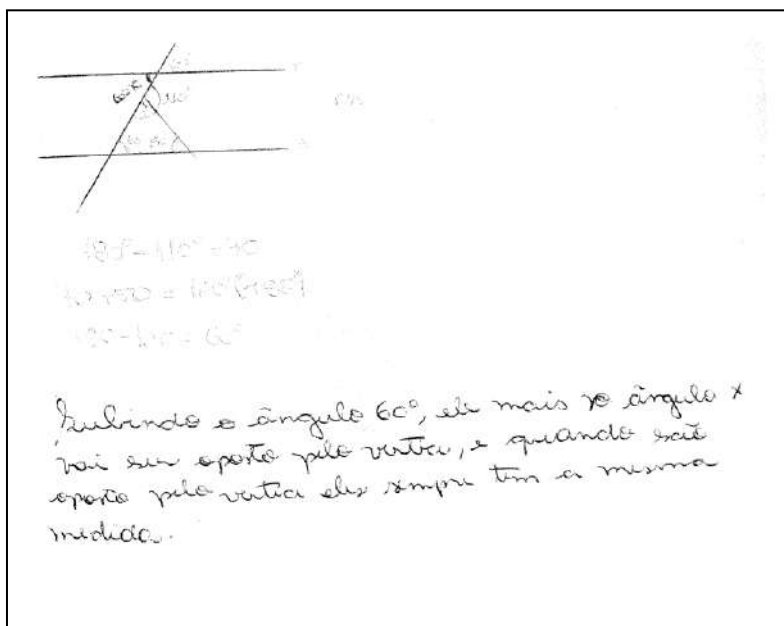 60°
x
110°
r
r//s
50
s
180° - 110° = 70
70 + 50 = 120 (
180 - 120 = 60°
Subindo o ângulo 60°, ele mais o ângulo x
vai ser oposto pelo vertice, e quando está
oposto pelo vertice eles sempre tem a mesma
medida.